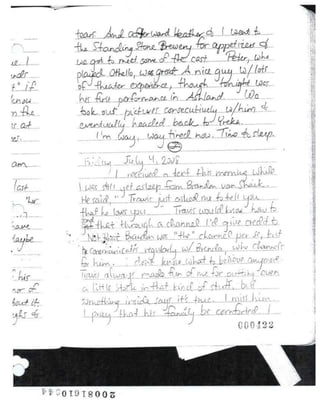 tears And afterward Heather & I went to
the Standing Stone Brewery for appetizers &
we got to meet some of the cast Peter, who
played Othello, was great A nice guy w/ lots
of theater experience, though tonight was
his first performance in Ashland. We
took our pictures consecutively w/ him &
eventually headed back to Yreka.
I'm way, way tired now. Time to sleep.
Friday July 4, 2008
I received a text this morning while
I was still yet asleep from Brandon van
He said, "Travis just asked me to tell you
that he loves you." Travis would know how to
that through a channel I'd give credit to
Brandon was "the" channel per se, but
communicates regularly w/ Brenda, who channels
to him. I don't know what to believe anymore
Travis always made fun of me for putting even
a little stock in that kind of stuff, but
something inside says it's true. I miss him
I pray that his family be comforted I
000422
e I
t" if
know
n the
s at
am
last
"her
have
maybe
his
nor of
bout it
ghs of
20081610